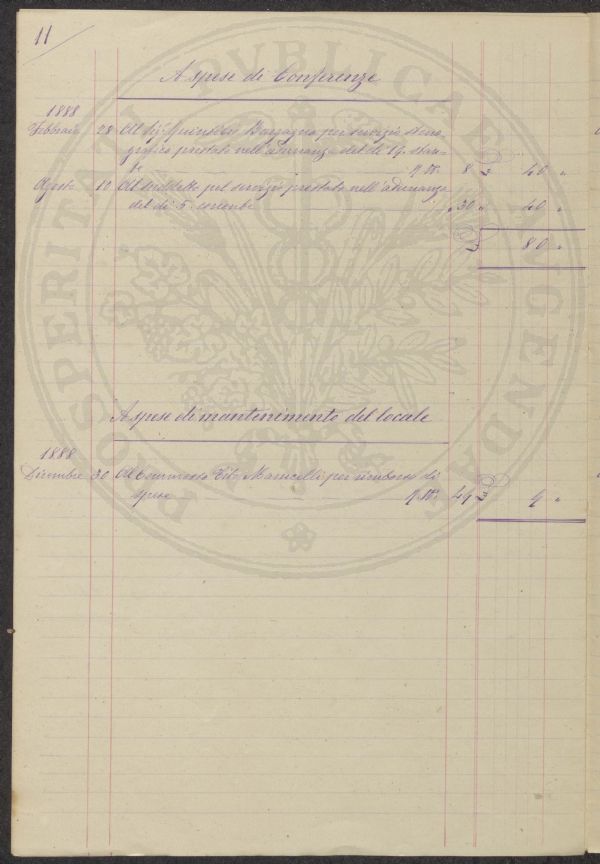 11
A spese di Conferenze
1888
Febbraio 28 Al Sig. Bargagna per servizio steno
grafico prestato nell'adunanza del dì 19
N.º 8 £ 40 "
Agosto 10 Al suddetto pel servizio prestato nell'adunanza
del dì 5 corrente " 30 " 40 "
£ 80 "
A spese di mantenimento del locale
1888
Dicembre 30 Al Commesso Tito Manicelli per rimborso di
spese N.º 49 £ 9 "
PROSPERITATI PVBLICAE AVGENDAE